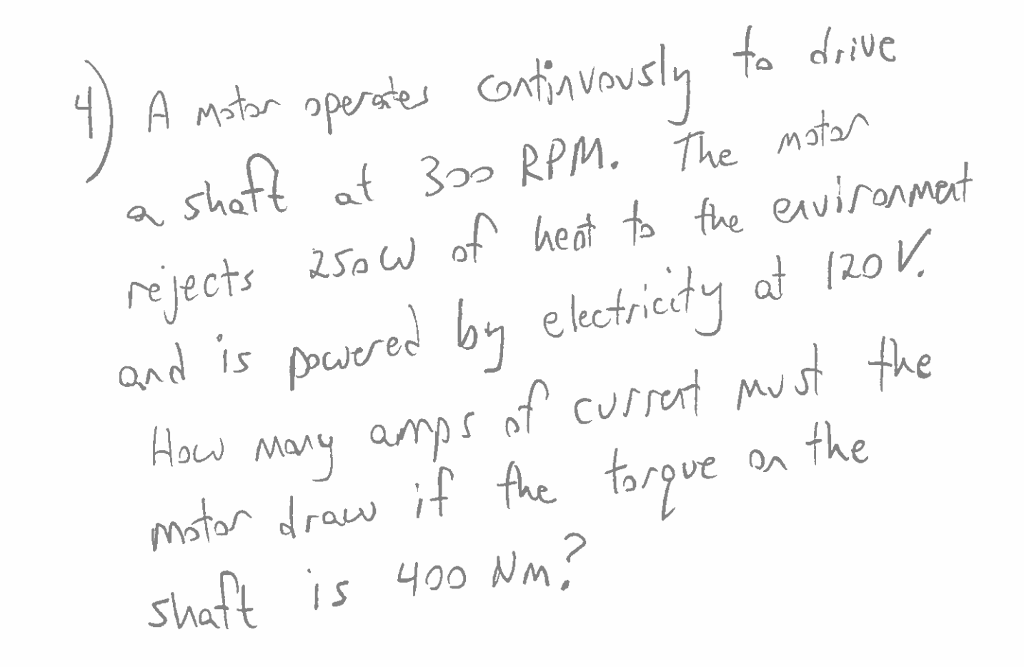 4) A motor operates continuously to drive
a shaft at 300 RPM. The motor
rejects 250W of heat to the environment
and is powered by electricity at 120 V.
How many amps of current must the
motor draw if the torque on the
shaft is 400 Nm?